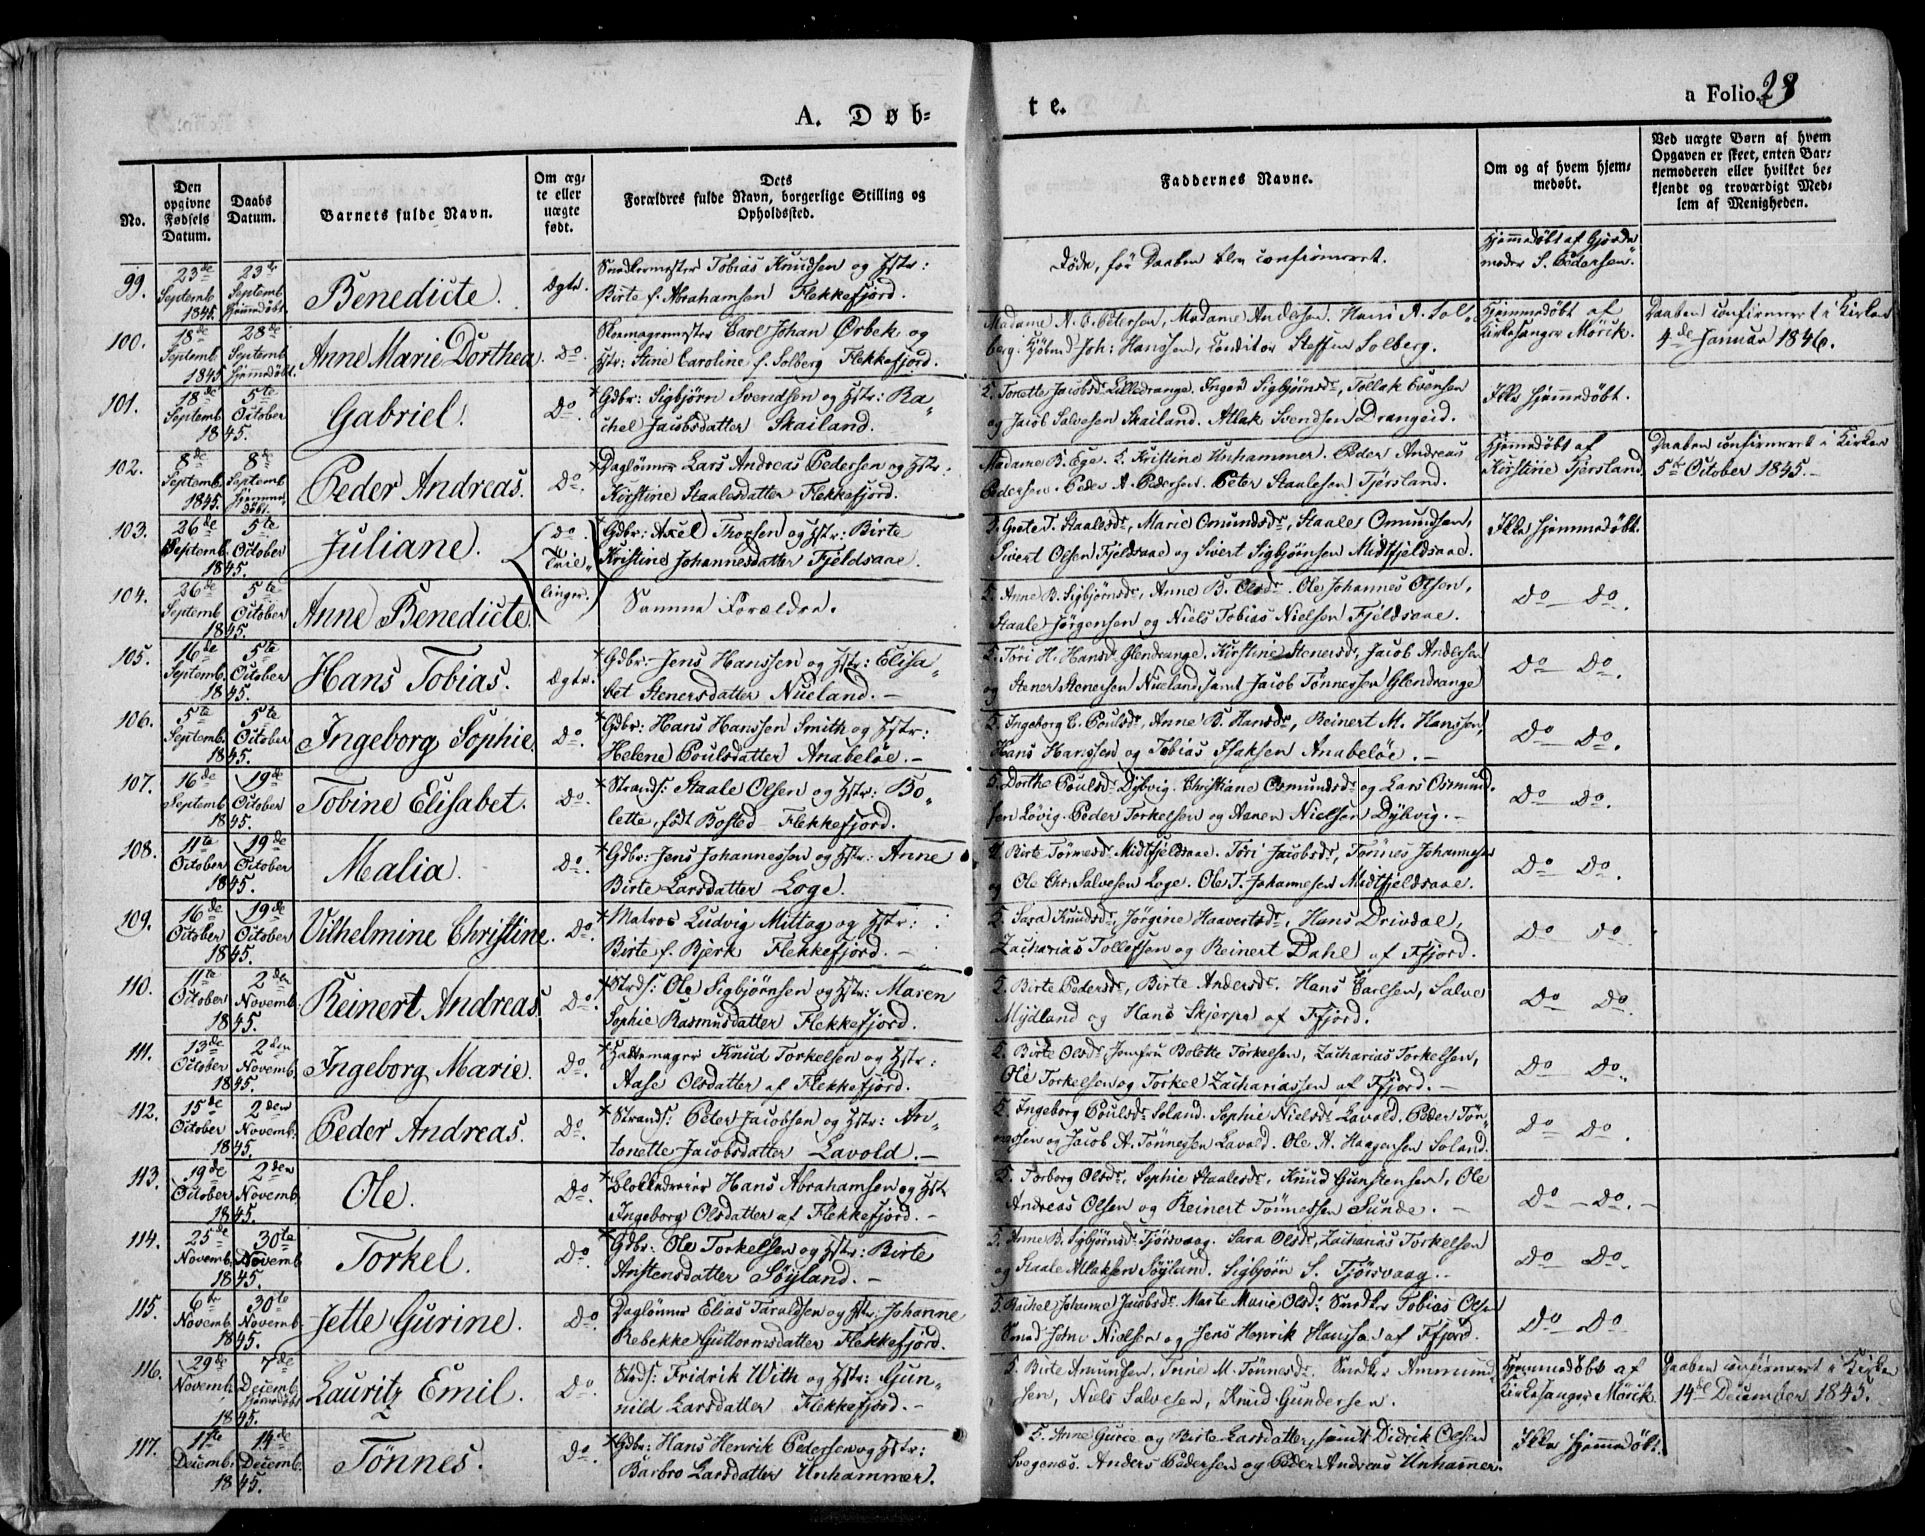 A. Døb-
te.
a Folio. 28
No.
Den opgivne Fødsels Datum.
Daabs Datum.
Barnets fulde Navn.
Om ægte eller uægte født.
Dets Forældres fulde Navn, borgerlige Stilling og Opholdssted.
Faddernes Navne.
Om og af hvem hjemmedøbt.
Ved uægte Børn af hvem Opgaven er skeet, enten Barnemoderen eller hvilket bekjendt og troværdigt Medlem af Menigheden.
99. 23de Septemb. 1845. 23de Septemb. hjemmedøbt Benedicte. Ægte. Snedkermester Tobias Knudsen og Hstr:
Birte f. Abrahamsen Flekkefjord.
Døde, før Daaben blev confirmeret. Hjemmedøbt af Gjordemoder S. Pedersen.
100. 18de Septemb. 1845 28de Septemb. hjemmedøbt. Anne Marie Dorthea. Do. Skomagermester Carl Johan Ørbek og
Hstr: Stine Caroline f. Solberg Flekkefjord.
Madame A. C. Petersen, Madame Andersen. Hans A. Sol-
berg. Kjøbmd Joh: Hanssen, Conditor Steffen Solberg.
Hjemmedøbt af Kirkesanger Mörck.
Daaben confirmeret i Kirken
4de Januar 1846.
101. 18de Septemb. 1845. 5te October Gabriel. Do. Gdbr: Sigbjørn Svendsen og Hstr: Ra-
chel Jacobsdatter Skailand.
5. Tonette Jacobsdr Lilledrange. Inger Sigbjørnsdr, Tollak Evensen
og Jacob Salvesen Skailand. Atlak Svendsen Drangeid.
Ikke hjemmedøbt.
102. 8de Septemb. 1845. 8de Septemb. hjemmedøbt. Peder Andreas. Do. Daglönner Lars Andreas Pedersen og Hstr.
Kirstine Staalesdatter Flekkefjord.
Madame B. Ege. Kristine Unhammer. Peder Andreas
Pedersen. Peder A. Pedersen. Peter Staalesen Tjørsland.
Hjemmedøbt af Kirstine Tjørsland.
Daaben confirmeret i Kirken
5te October 1845.
103. 26de Septemb. 1845. 5te October Juliane. Do. Gdbr: Axel Thorsen og Hstr: Birte
Kristine Johannesdatter Fjeldsaae.
5. Grete T. Staalesdr, Marie Omundsdr, Staale Omundsen,
Sivert Olsen Fjeldsaae og Sivert Sigbjørnsen Midtfjeldsaae.
Ikke hjemmedøbt.
Tvil-
linger.
104. 26de Septemb. 1845. 5te October Anne Benedicte. Samme Forældre.
5. Anne B. Sigbjørnsdr, Anne B. Olsdr. Ole Johannes Olsen,
Staale Jørgensen og Niels Tobias Nielsen Fjeldsaae.
Do Do.
105. 16de Septemb. 1845. 5te October Hans Tobias. Ægte. Gdbr: Jens Hanssen og Hstr: Elisa-
bet Stenersdatter Nueland.
5. Tøri H. Hansdr Glendrange. Kirstine Stenersdr, Jacob Andersen
og Stener Stenersen Nueland, samt Jacob Tönnessen Glendrange
Do Do.
106. 5te Septemb. 1845. 5te October Ingeborg Sophie. Do. Gdbr: Hans Hanssen Smith og Hstr:
Helene Poulsdatter Anabeløe.
5. Ingeborg E. Poulsdr, Anne B. Hansdr, Reinert M. Hanssen,
Hans Hanssen og Tobias Isaksen Anabeløe.
Do Do.
107. 16de Septemb. 1845. 19de October Tobine Elisabet. Do. Strands: Staale Olsen og Hstr: Bo-
lette, født Bosted Flekkefjord.
5. Dorthe Poulsdr Dybvig. Christiane Osmundsdr og Lars Osmund-
sen Løvig. Peder Torkelsen og Aanen Nielsen Dybvig.
Do Do.
108. 11te October 1845. 19de October Malia. Do. Gdbr: Jens Johannessen og Hstr: Anne
Birte Larsdatter Loge.
Birte Tønnesdr Midtfjeldsaae. Töri Jacobsdr, Tönnes Johannesen
og Ole Chr. Salvesen Loge. Ole T. Johannesen Midtfjeldsaae.
Do Do.
109. 16de October 1845. 19de October Vilhelmine Christine. Do. Matros Ludvig Mittag og Hstr:
Birte f. Bjerk Flekkefjord.
5. Sara Knudsdr, Jörgine Haaversdr, Hans Drivdal,
Zacharias Tollefsen og Reinert Dahl af Ffjord.
Do Do
110. 11te October 1845. 2den Novemb. Reinert Andreas. Do. Strds: Ole Sigbjørnsen og Hstr: Maren
Sophie Rasmusdatter Flekkefjord.
5. Birte Pedersdr, Birte Andersdr. Hans Carlsen, Salve
Mydland og Hans Skjerpe af Ffjord.
Do Do.
111. 13de October 1845. 2den Novemb. Ingeborg Marie. Do. Hattemager Knud Torkelsen og Hstr:
Aase Olsdatter af Flekkefjord.
5. Birte Olsdr, Jomfru Bolette Torkelsen, Zacharias Torkelsen,
Ole Torkelsen og Torkel Zachariassen af Ffjord.
Do Do.
112. 15de October 1845. 2den Novemb. Peder Andreas. Do. Strands: Peter Jacobsen og Hstr: An-
tonette Jacobsdatter Lavold.
5. Ingeborg Poulsdr Soland. Sophie Nielsdr Lavold. Peder Tön-
nessen og Jacob A. Tönnesen Lavold. Ole A. Haagensen Soland.
Do Do.
113. 19de October 1845. 2den Novemb. Ole. Do. Blokkedreier Hans Abrahamsen og Hstr
Ingeborg Olsdatter af Flekkefjord.
5. Torborg Olsdr, Sophie Staalesdr, Knud Gunstensen, Ole
Andreas Olsen og Reinert Tönnessen Sunde.
Do Do.
114. 25de Novemb. 1845. 30te Novemb. Torkel. Do. Gdbr: Ole Torkelsen og Hstr: Birte
Aristensdatter Søyland.
5. Anne B. Sigbjørnsdr Tjørsvaag. Sara Olsdr, Zacharias Torkelsen
og Staale Atlaksen Søyland. Sigbjörn S. Tjørsvaag.
Do Do.
115. 6te Novemb. 1845. 30te Novemb. Jette Gurine. Do. Daglönner Elias Taraldsen og Hstr: Johanne
Rebekke Guttormsdatter Flekkefjord.
5. Rachel Johanne Jacobsdr. Marte Marie Olsdr. Snedkr Tobias Olsen
Smed John Nielsen og Jens Henrik Hanssen af Ffjord.
Do Do.
116. 29de Novemb. 1845. 7de Decemb. hjemmedøbt Lauritz Emil. Do. Strds: Fridrik With og Hstr: Gun-
nild Larsdatter Flekkefjord.
5. Birte Amundsen, Trine M. Tönnesdr. Snedkr Ammund-
sen, Niels Salvesen, Knud Gundersen.
Hjemmedøbt af Kirkesanger Mörck.
Daaben confirmeret i Kirken
14de December 1845.
117. 11te Decemb. 1845. 14de Decemb. Tønnes. Do. Gdbr: Hans Henrik Pedersen og Hstr:
Barbro Larsdatter Unhammer.
5. Anne Gurie og Birte Larsdatter, samt Didrik Olsen
Svegenæs. Anders Pedersen og Peder Andreas Unhammer.
Ikke hjemmedøbt.